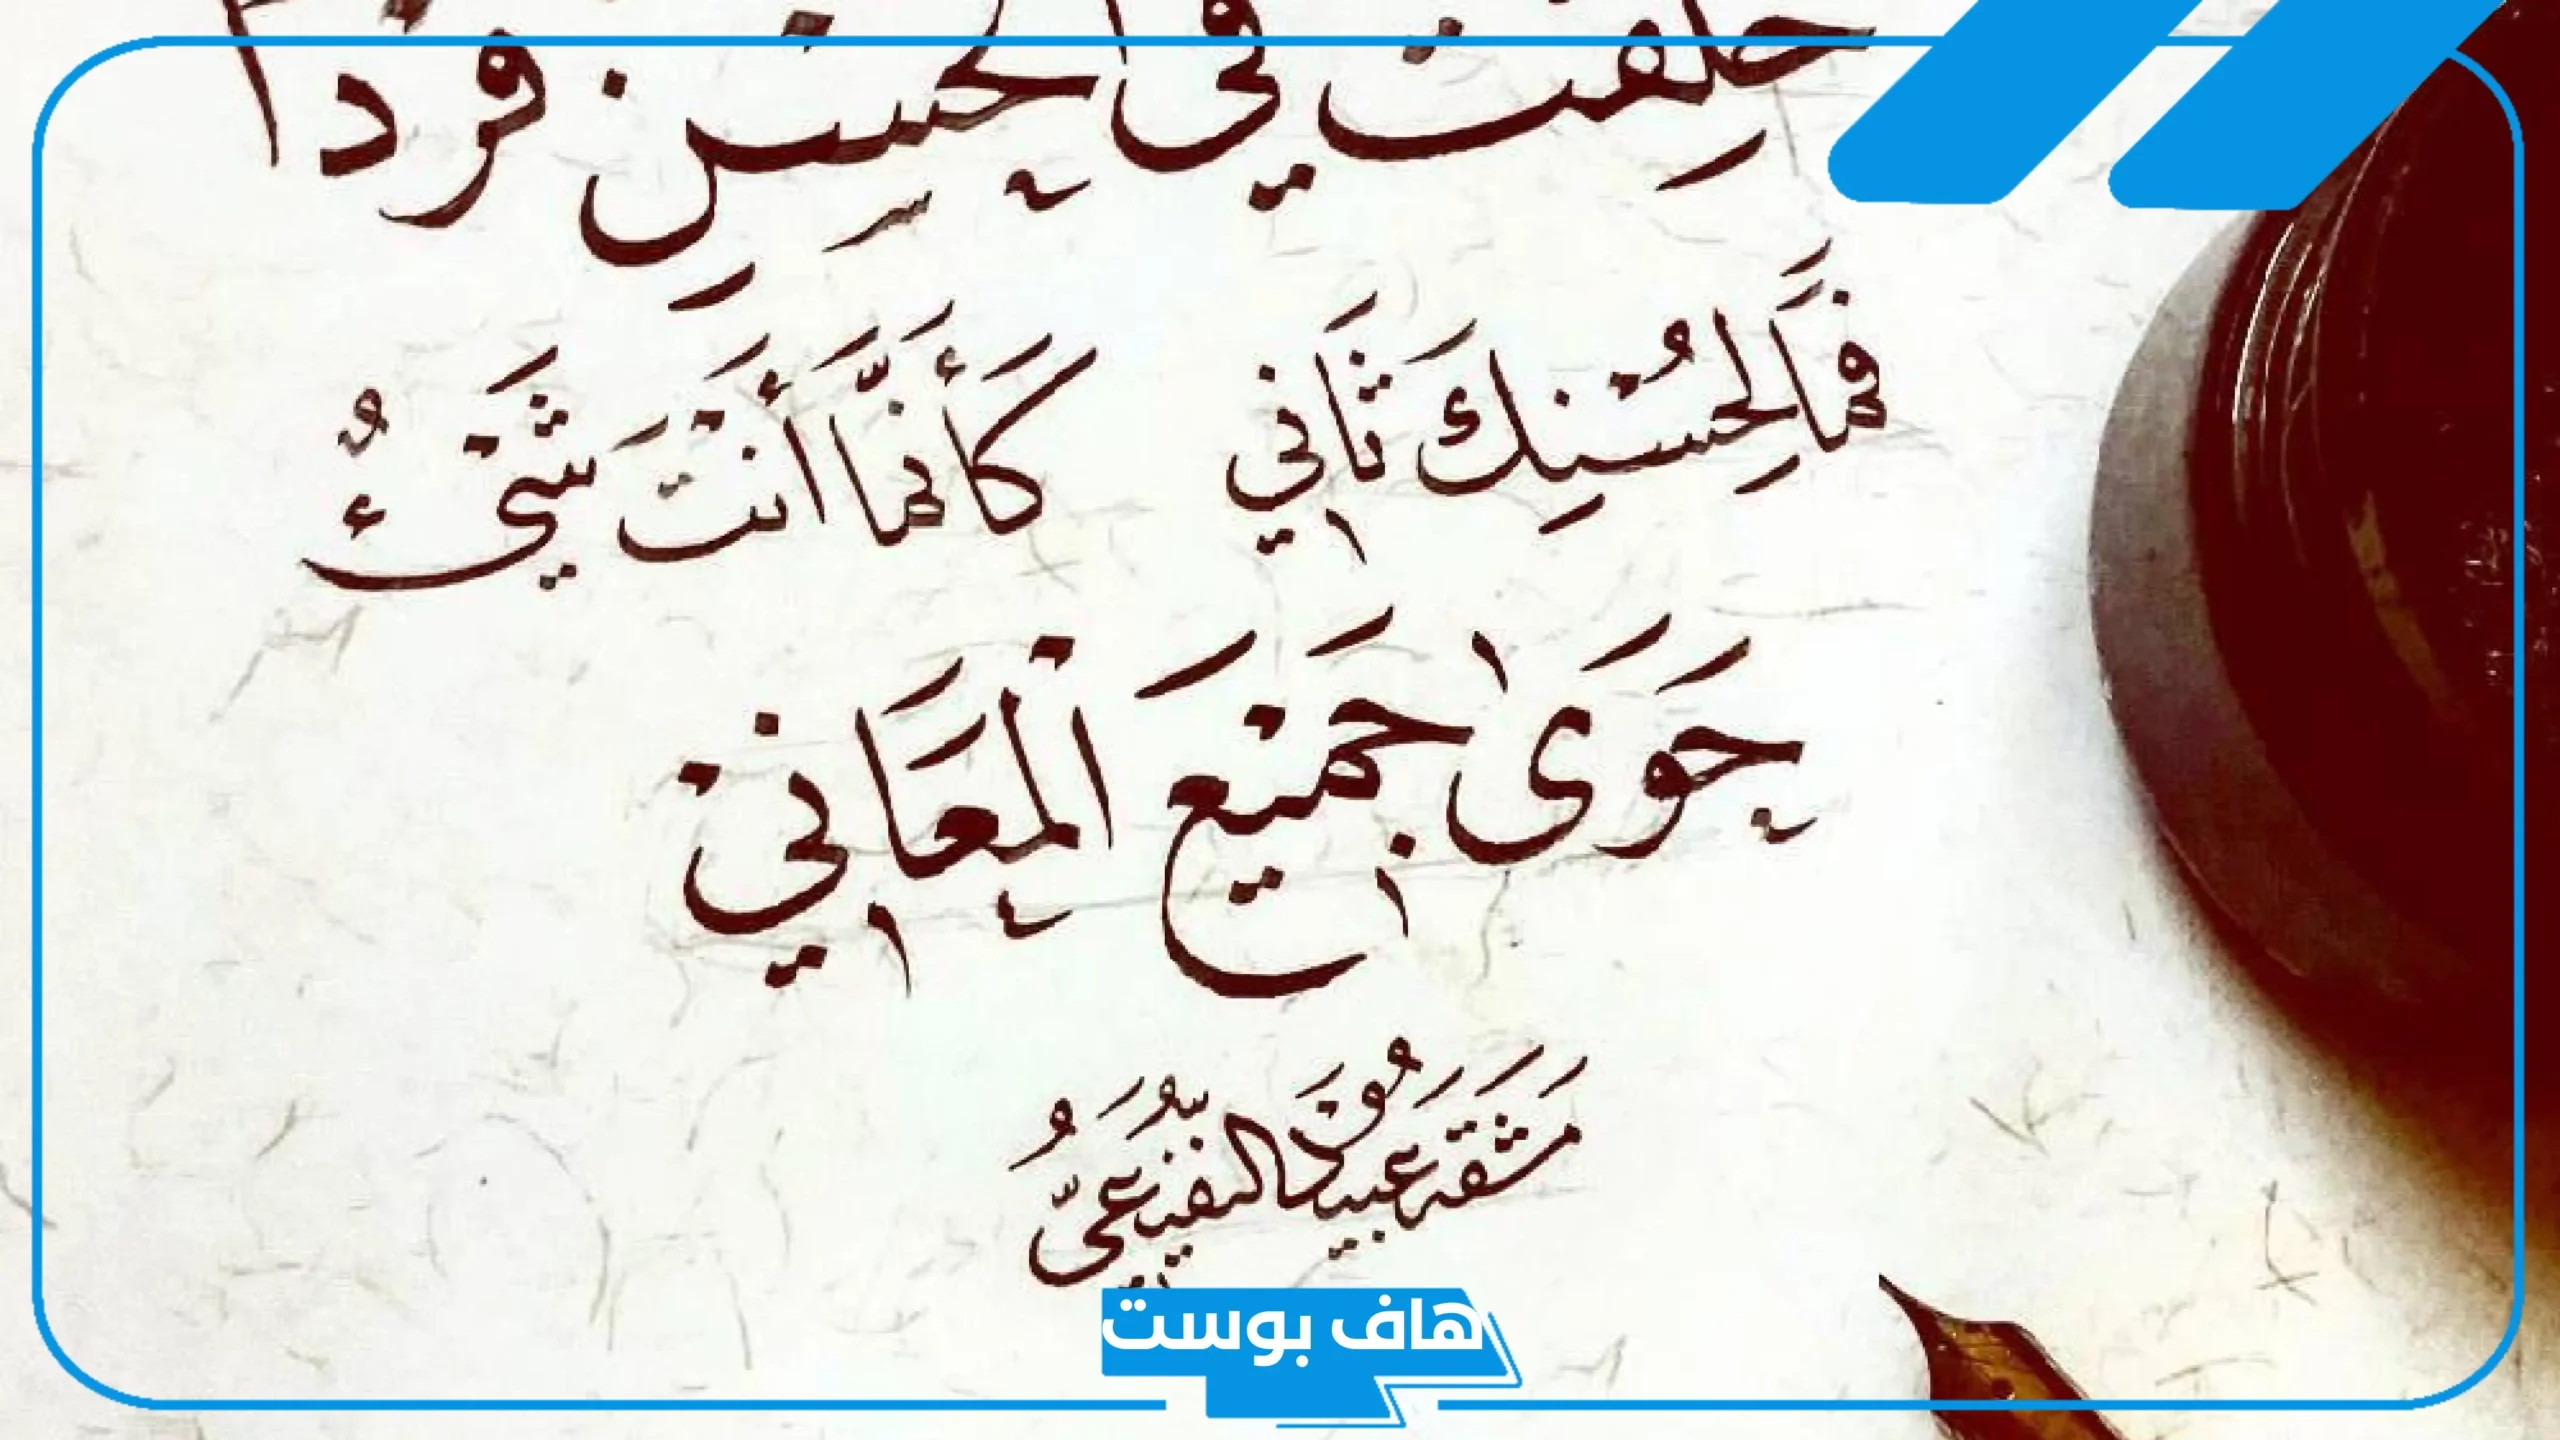 خُلِقْتَ فِي الْحُسْنِ فَرْدًا
فَمَا لِحُسْنِكَ ثَانِي كَأَنَّمَا أَنْتَ شَيْءٌ
حَوَى جَمِيْعَ الْمَعَانِيْ
مَشَقَهُ عُبَيْدُ النُّفَيْعِيُّ
هاف بوست